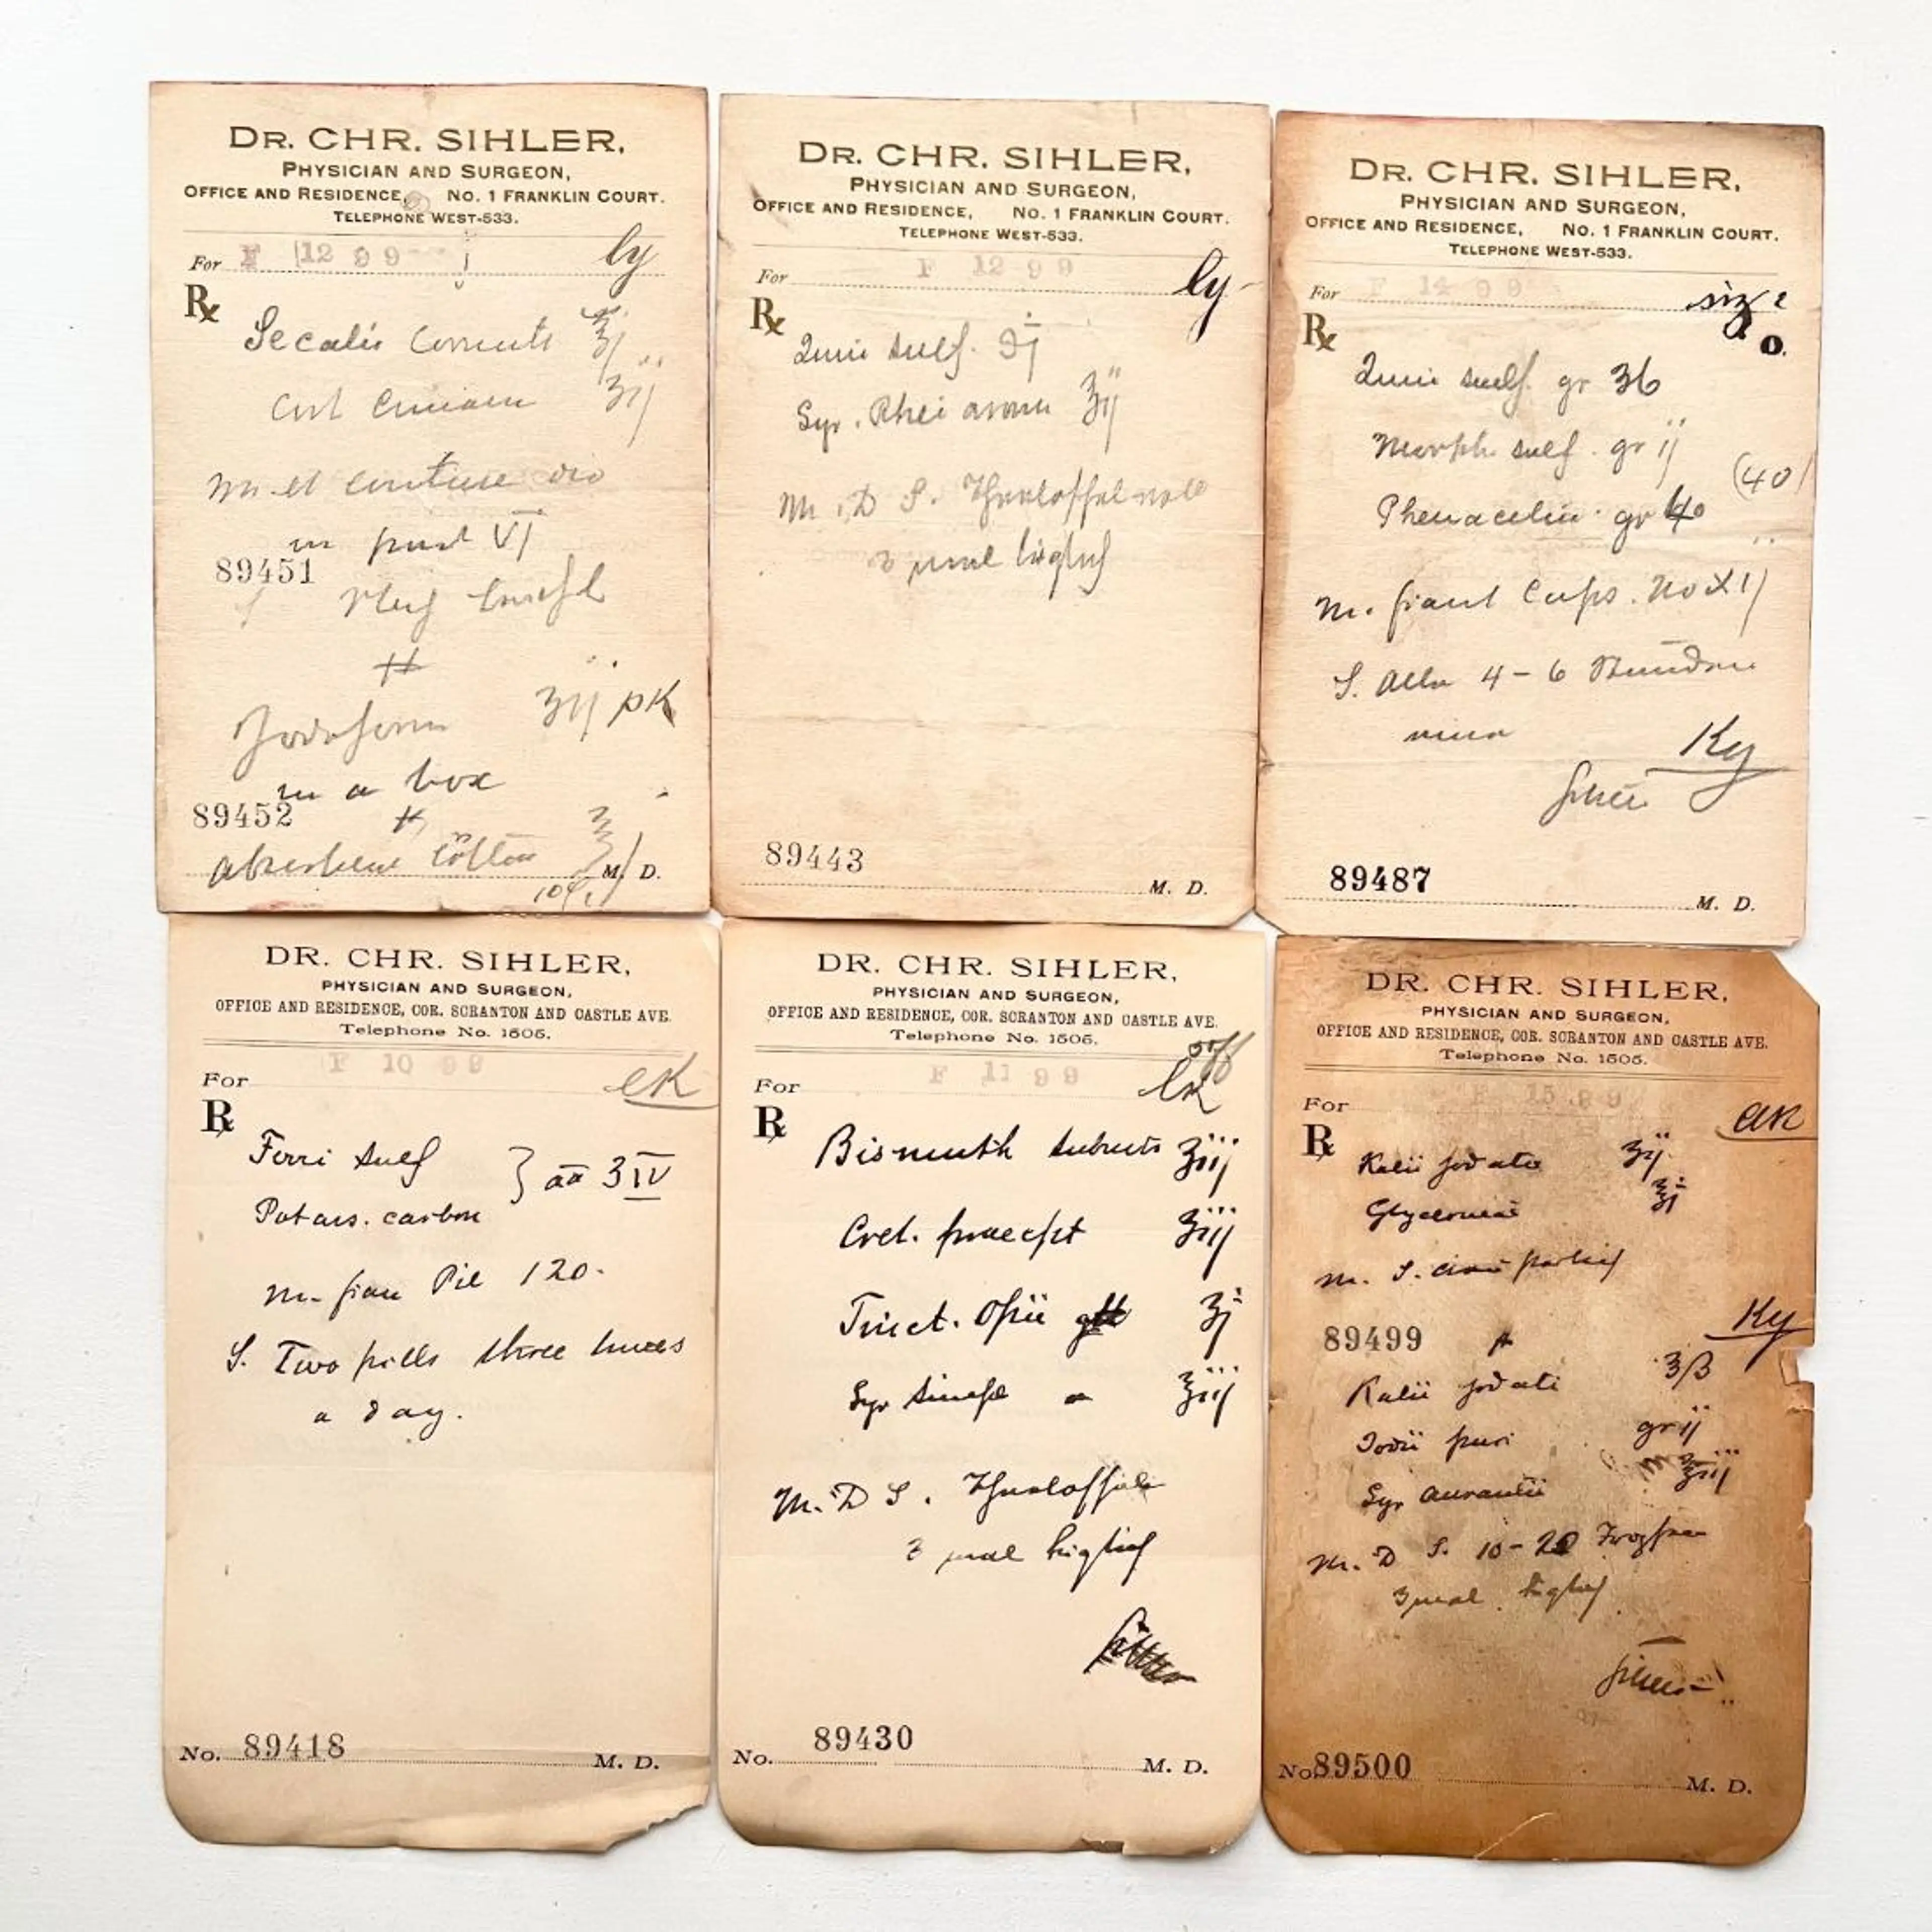 DR. CHR. SIHLER,
PHYSICIAN AND SURGEON,
OFFICE AND RESIDENCE, NO. 1 FRANKLIN COURT.
TELEPHONE WEST-533.
For F 12 99 ly
Rx
Secalis Cornuti
Cort Cinnam ʒij
M et
in part VI
89451
#
Jodoform ʒij pk
in a box
89452 #
absorbent Cotton
10¢ M. D.
DR. CHR. SIHLER,
PHYSICIAN AND SURGEON,
OFFICE AND RESIDENCE, NO. 1 FRANKLIN COURT.
TELEPHONE WEST-533.
For F 12 99 ly
Rx
Quin sulf. ℈j
Syr. Rhei arom ʒij
M. D S. Theelöffelvoll
3 mal täglich
89443
M. D.
DR. CHR. SIHLER,
PHYSICIAN AND SURGEON,
OFFICE AND RESIDENCE, NO. 1 FRANKLIN COURT.
TELEPHONE WEST-533.
For F 14 99
Rx
o.
Quin sulf. gr 36
Morph sulf. gr ij
(40)
Phenacetin gr 40
M. fiant Caps. No XIj
S. Alle 4 - 6 Stunden
eine
Ky
Sihler
89487
M. D.
DR. CHR. SIHLER,
PHYSICIAN AND SURGEON,
OFFICE AND RESIDENCE, COR. SCRANTON AND CASTLE AVE.
Telephone No. 1505.
F 10 99
For ek
Rx
Ferri sulf } aa ʒ IV
Potass. carbon
M. fian Pil 120.
S. Two pills three times
a day.
No. 89418 M. D.
DR. CHR. SIHLER,
PHYSICIAN AND SURGEON,
OFFICE AND RESIDENCE, COR. SCRANTON AND CASTLE AVE.
Telephone No. 1505.
F 11 99
For
Rx
Bismuth subnits ʒiij
Cret. praecipt ʒiij
Tinct. Opii ʒj
Syr simpl ℥iij
M. D S. Theelöffel
3 mal täglich
No. 89430 M. D.
DR. CHR. SIHLER,
PHYSICIAN AND SURGEON,
OFFICE AND RESIDENCE, COR. SCRANTON AND CASTLE AVE.
Telephone No. 1505.
F 15 99
For
Rx
Kalii jodati ʒij
Glycerinae ℥j
M. S.
Ky
89499
Kalii jodati ʒß
Jodii puri gr ij
Syr Aurantii ℥iij
M. D S. 10 - 20 Tropfen
3 mal täglich
Sihler
No. 89500 M. D.